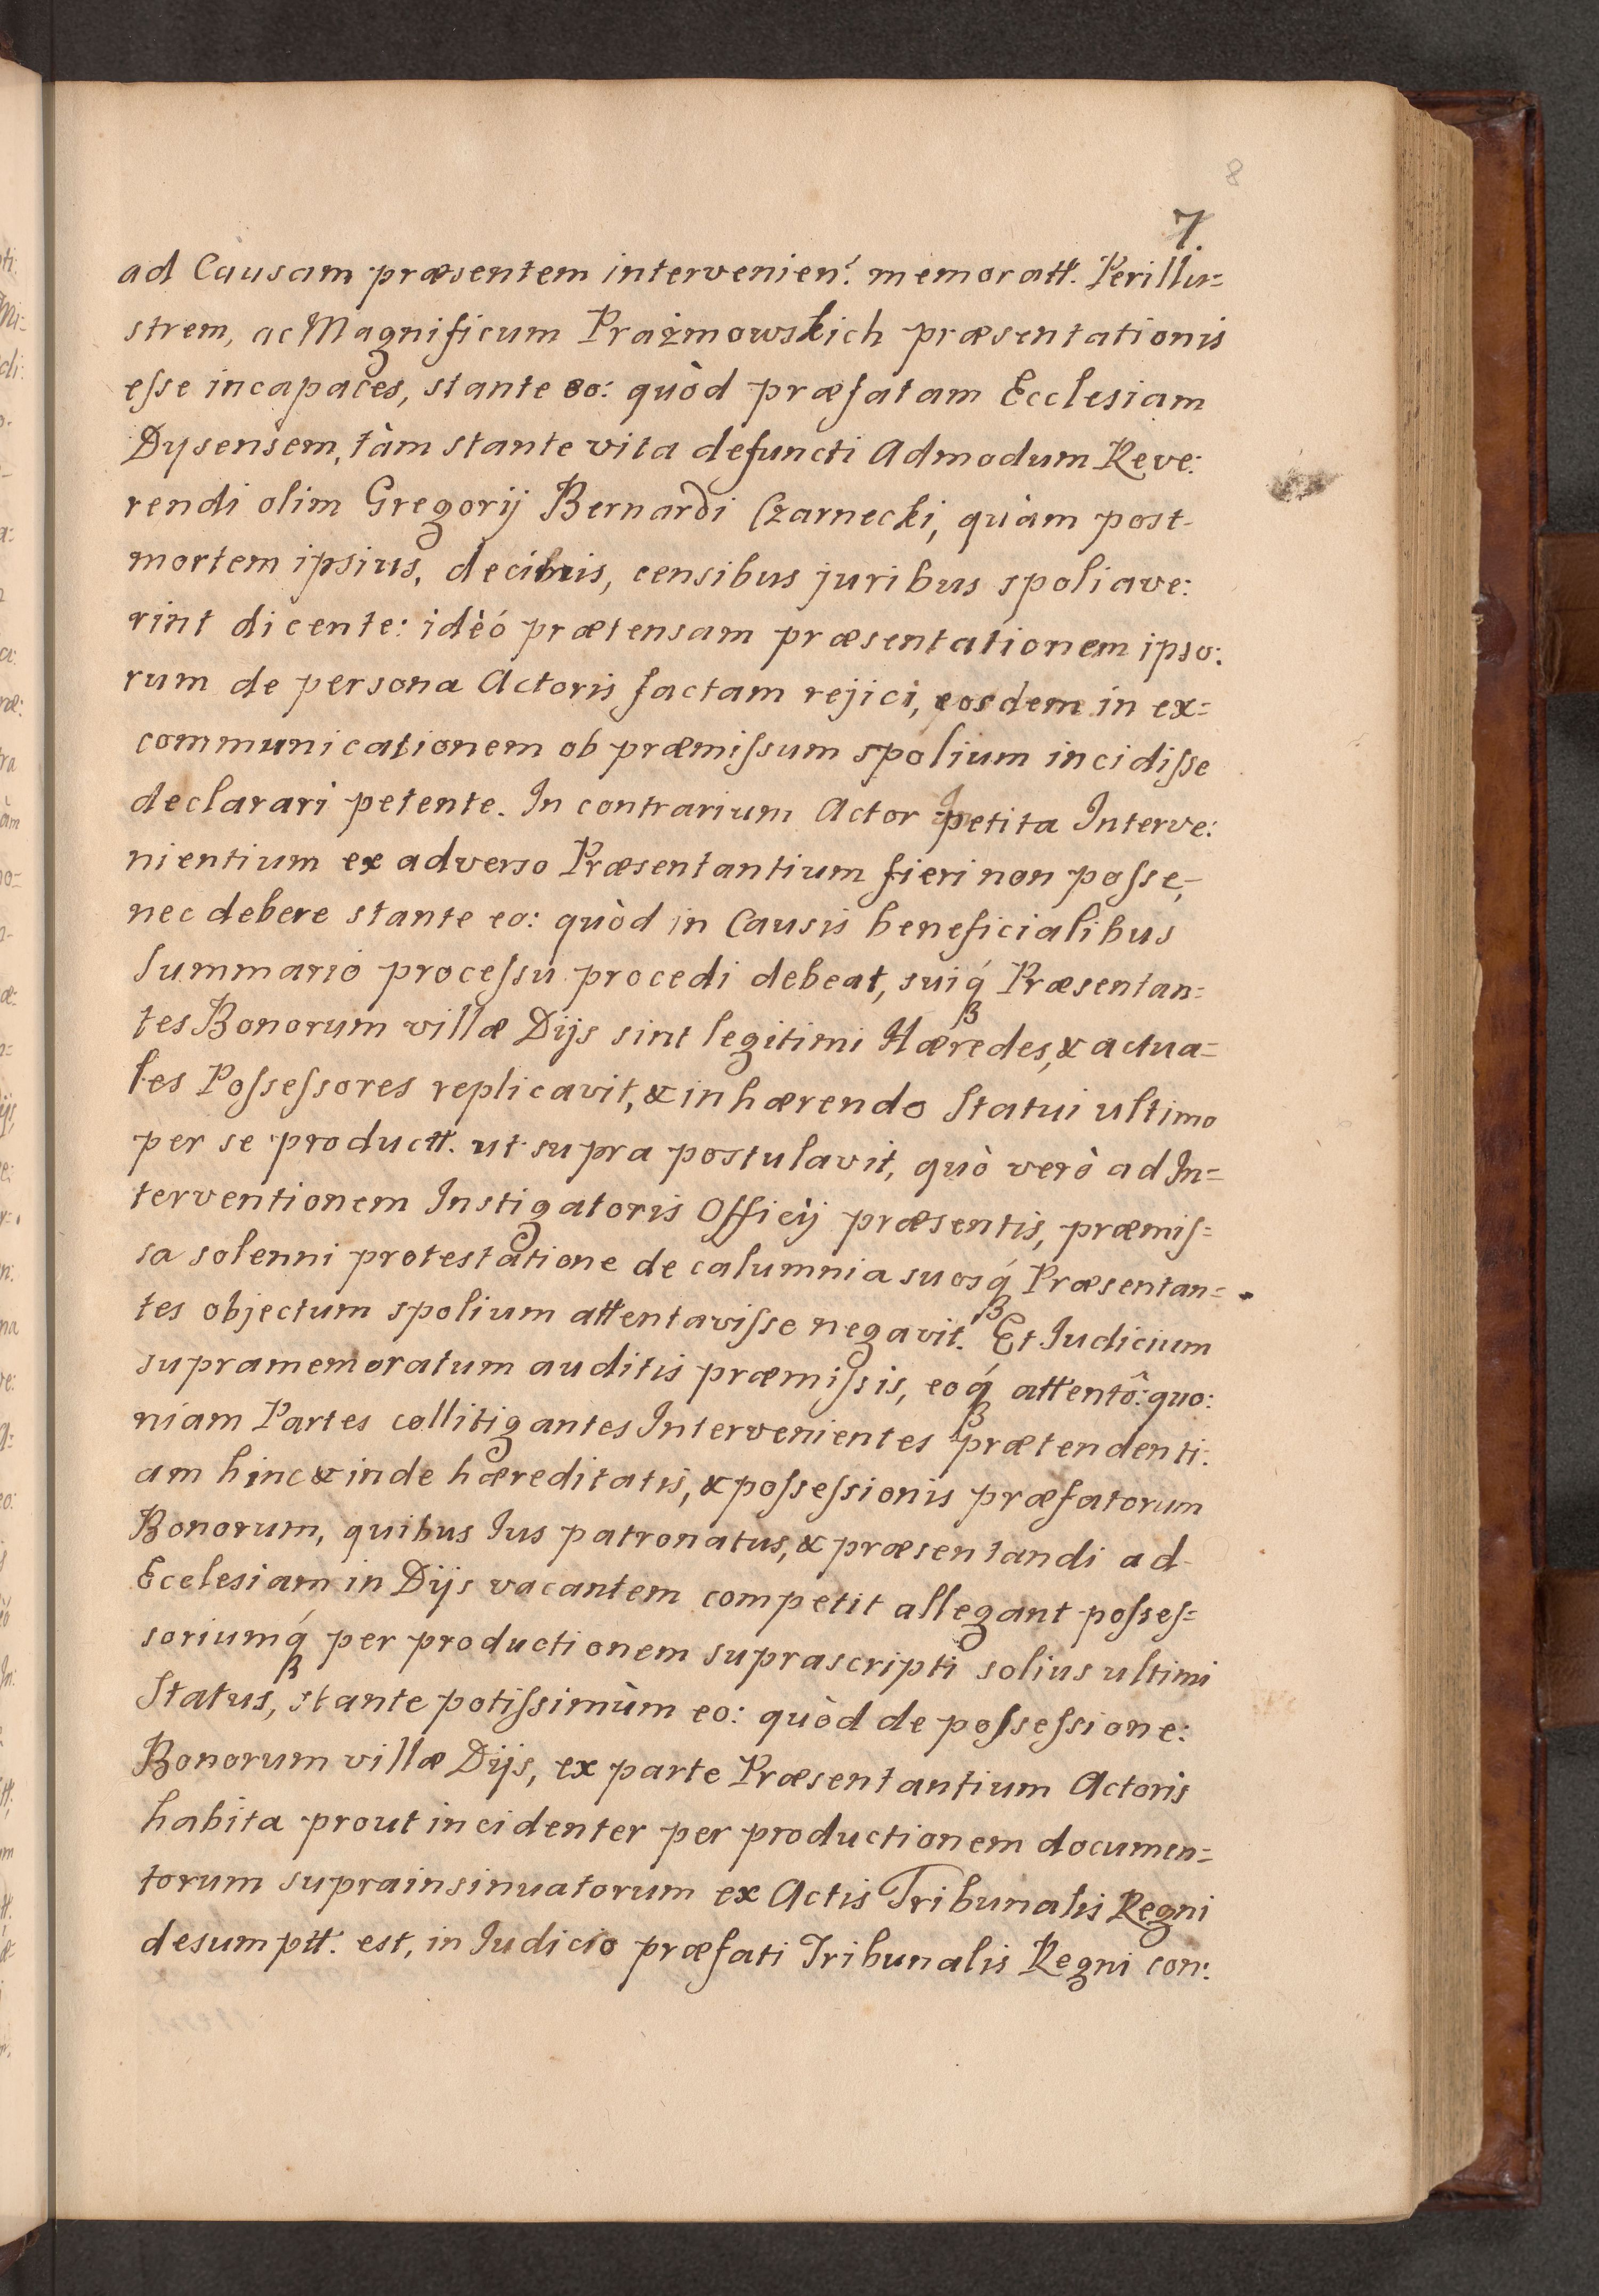 8
7.
ad Causam præsentem intervenien: memoratt. Perillu=
strem, ac Magnificum Prażmowskich præsentationis
eſse incapaces, stante eo: quòd præfatam Ecclesiam
Dysensem, tàm stante vita defuncti Admodum Reve:
rendi olim Gregorij Bernardi Czarnecki, quàm post-
mortem ipsius, decimis, censibus juribus spoliave:
rint dicente: idèó prætensam præsentationem ipso:
rum de persona Actoris factam rejici, eosdem in ex=
communicationem ob præmiſsum spolium incidiſse
declarari petente. In contrarium Actor petita Interve:
nientium ex adverso Præsentantium fieri non poſse,-
nec debere stante eo: quòd in Causis beneficialibus
Summario proceſsu procedi debeat, suiq́ꝫ Præsentan=
tes Bonorum villæ Dijs sint legitimi Hæredes, & actua=
les Poſseſsores replicavit, & inhærendo Statui ultimo
per se productt. ut supra postulavit, quò verò ad In=
terventionem Instigatoris Officij præsentis, præmiſ=
sa solenni protestatione de calumnia suosq́ꝫ Præsentan=
tes objectum spolium attentaviſse negavit. Et Iudicium
supramemoratum auditis præmiſsis, eoq́ꝫ attentô: quo:
niam Partes collitigantes Intervenientes prætendenti:
am hinc & inde hæreditatis, & poſseſsionis præfatorum
Bonorum, quibus Ius patronatus, & præsentandi ad-
Ecclesiam in Dijs vacantem competit allegant poſseſ=
soriumq́ꝫ per productionem suprascripti solius ultimi
Status, stante potiſsimùm eo: quòd de poſseſsione:
Bonorum villæ Dijs, ex parte Præsentantium Actoris
habita prout incidenter per productionem documen=
torum suprainsinuatorum ex Actis Tribunalis Regni
desumptt. est, in Iudicio præfati Tribunalis Regni con: